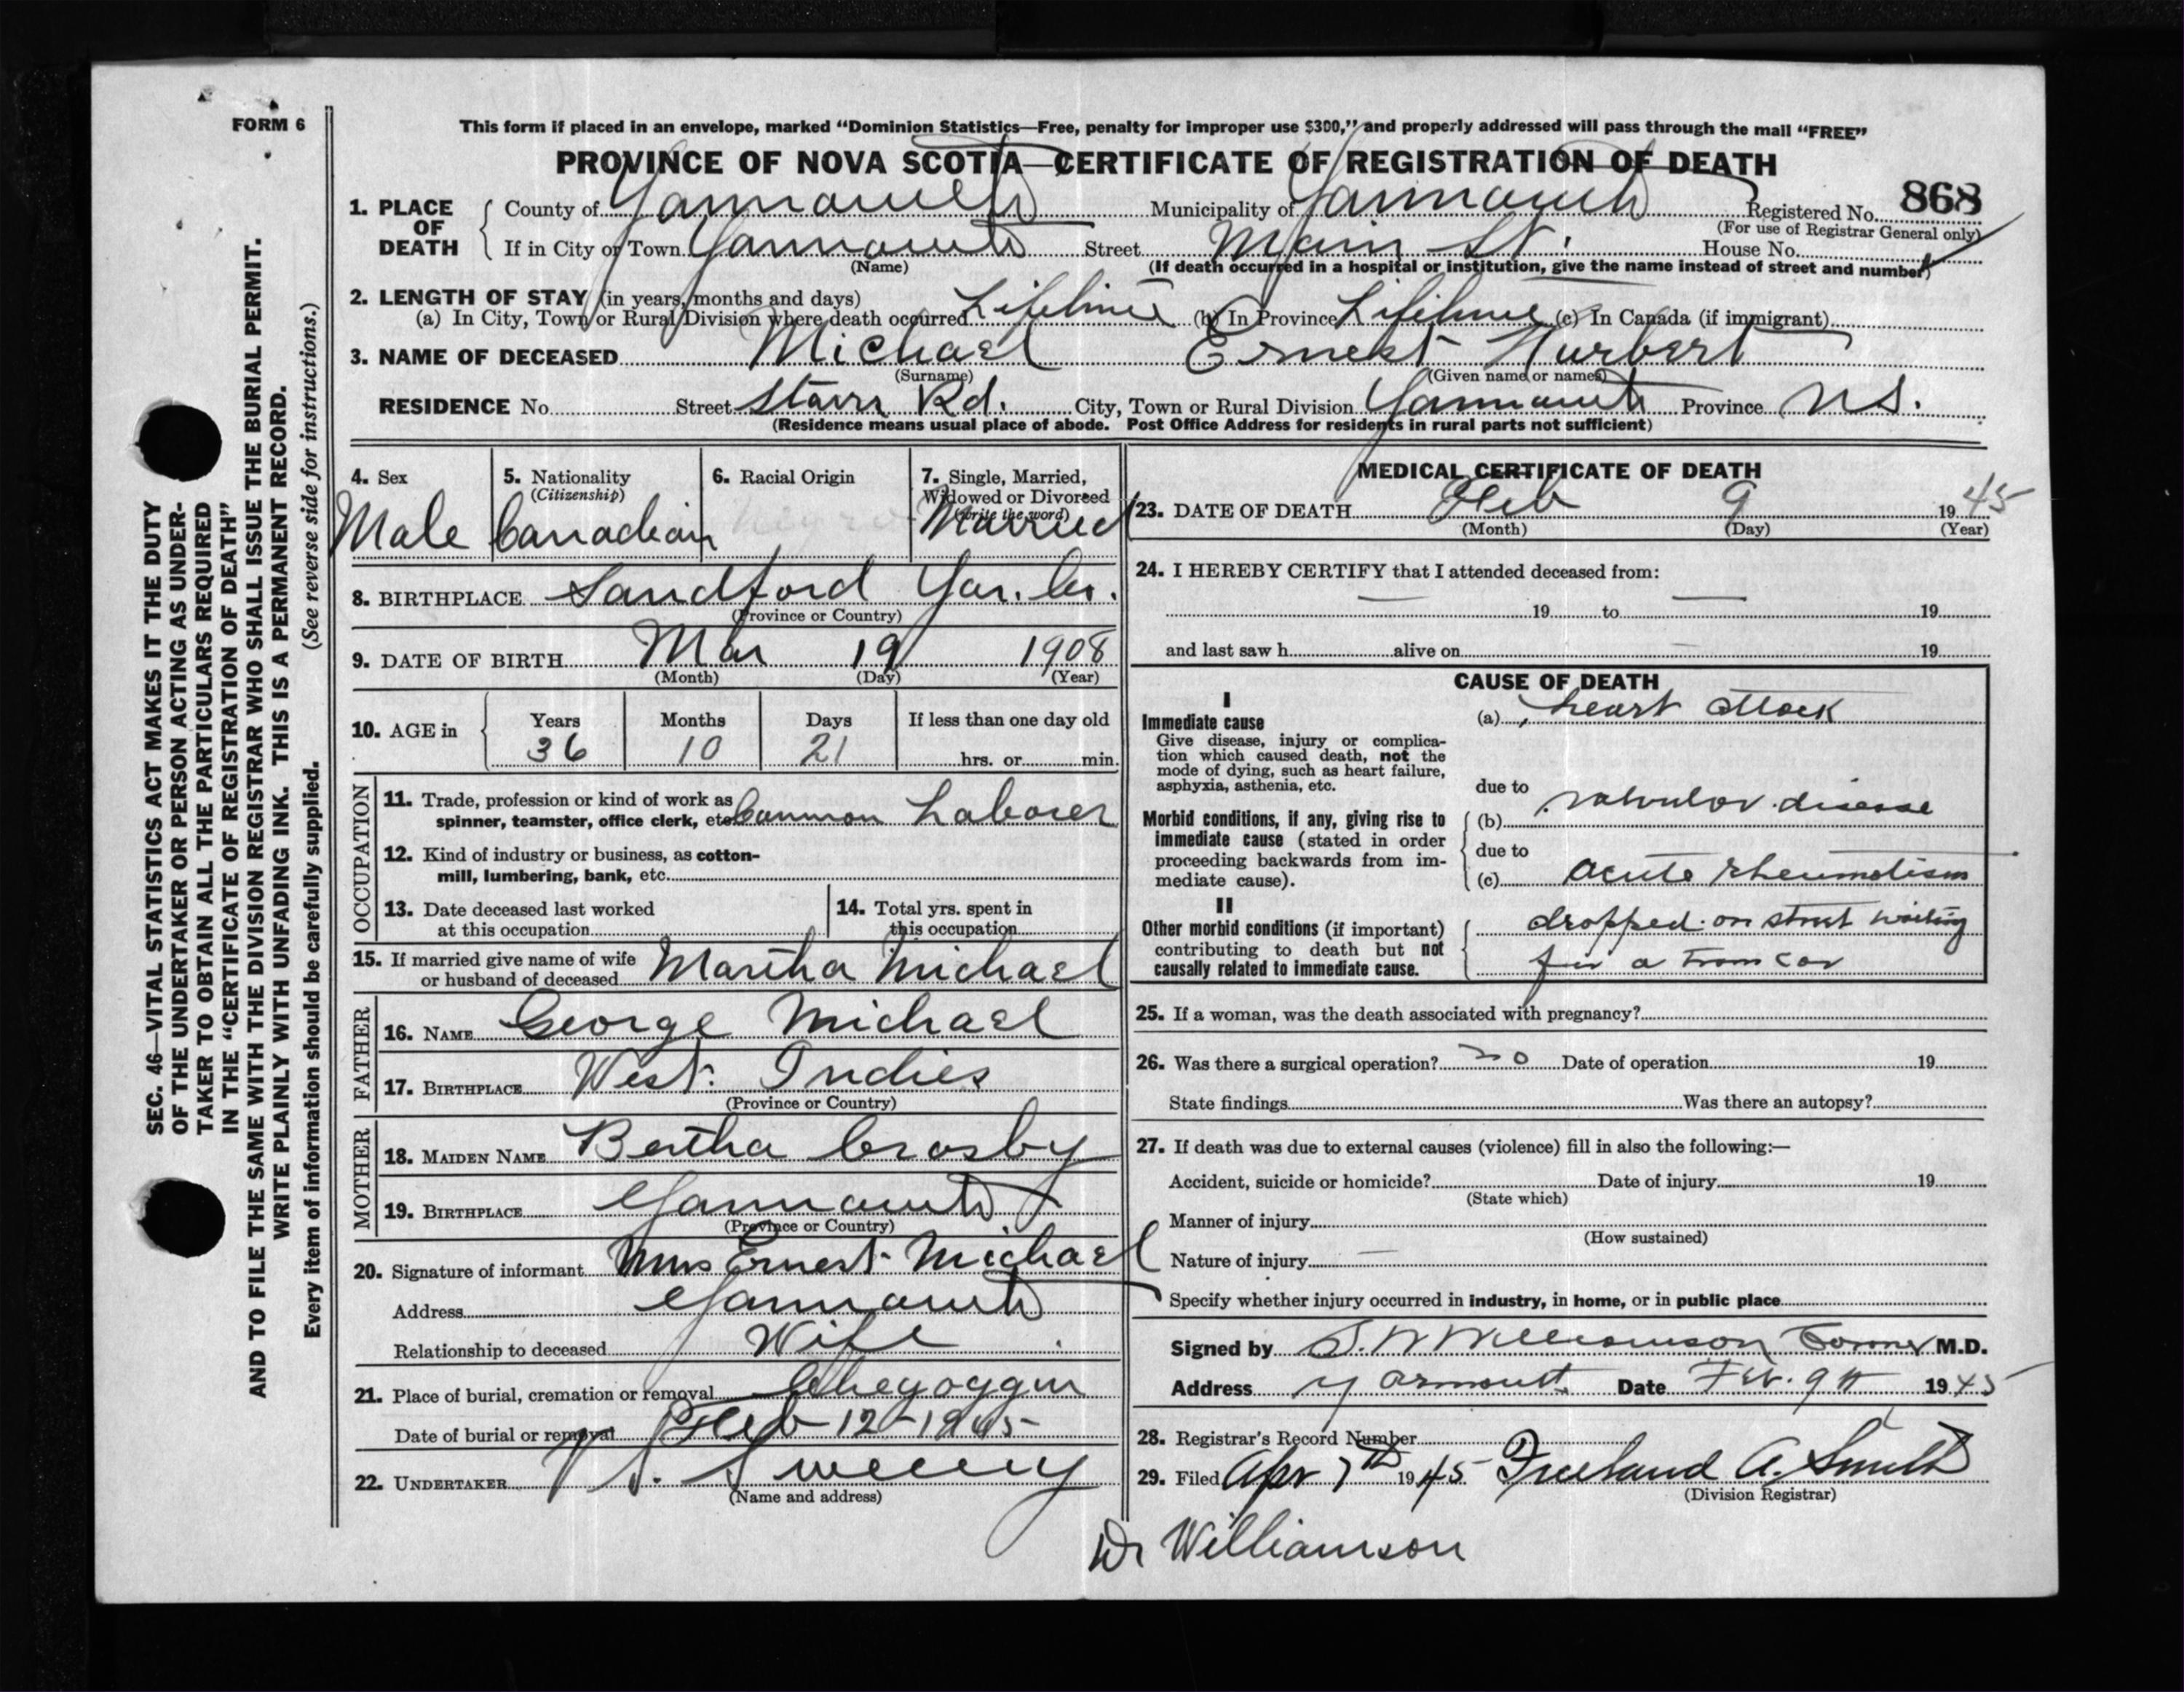 FORM 6
This form if placed in an envelope, marked "Dominion Statistics—Free, penalty for improper use $300," and properly addressed will pass through the mail "FREE"
PROVINCE OF NOVA SCOTIA—CERTIFICATE OF REGISTRATION OF DEATH
1. PLACE OF DEATH County of Yarmouth Municipality of Yarmouth Registered No. 868
(For use of Registrar General only)
If in City or Town Yarmouth Street Main St. House No.
(Name) (If death occurred in a hospital or institution, give the name instead of street and number)
2. LENGTH OF STAY (in years, months and days)
(a) In City, Town or Rural Division where death occurred Lifetime (b) In Province Lifetime (c) In Canada (if immigrant)
3. NAME OF DECEASED Michael Ernest Hurbert
(Surname) (Given name or names)
RESIDENCE No. Street Starrs Rd. City, Town or Rural Division Yarmouth Province N.S.
(Residence means usual place of abode. Post Office Address for residents in rural parts not sufficient)
4. Sex
Male
5. Nationality
(Citizenship)
Canadian
6. Racial Origin
7. Single, Married,
Widowed or Divorced
(write the word)
Married
8. BIRTHPLACE Sandford Yar. Co.
(Province or Country)
9. DATE OF BIRTH Mar 19 1908
(Month) (Day) (Year)
10. AGE in Years Months Days If less than one day old
36 10 21 hrs. or min.
OCCUPATION
11. Trade, profession or kind of work as
spinner, teamster, office clerk, etc. Common Laborer
12. Kind of industry or business, as cotton-
mill, lumbering, bank, etc.
13. Date deceased last worked
at this occupation
14. Total yrs. spent in
this occupation
15. If married give name of wife
or husband of deceased Martha Michael
FATHER
16. NAME George Michael
17. BIRTHPLACE West Indies
(Province or Country)
MOTHER
18. MAIDEN NAME Bertha Crosby
19. BIRTHPLACE Yarmouth
(Province or Country)
20. Signature of informant Mrs Ernest Michael
Address Yarmouth
Relationship to deceased Wife
21. Place of burial, cremation or removal Chegoggin
Date of burial or removal Feb 12-1945
22. UNDERTAKER V S. Sweeny
(Name and address)
MEDICAL CERTIFICATE OF DEATH
23. DATE OF DEATH Feb 9 1945
(Month) (Day) (Year)
24. I HEREBY CERTIFY that I attended deceased from:
— 19 to — 19
and last saw h alive on — 19
CAUSE OF DEATH
I
Immediate cause
Give disease, injury or complica-
tion which caused death, not the
mode of dying, such as heart failure,
asphyxia, asthenia, etc.
(a) heart attack
due to
Morbid conditions, if any, giving rise to
immediate cause (stated in order
proceeding backwards from im-
mediate cause).
(b) valvular disease
due to
(c) acute rheumatism
II
Other morbid conditions (if important)
contributing to death but not
causally related to immediate cause.
dropped on street waiting
for a tram car
25. If a woman, was the death associated with pregnancy?
26. Was there a surgical operation? no Date of operation 19
State findings Was there an autopsy?
27. If death was due to external causes (violence) fill in also the following:—
Accident, suicide or homicide? Date of injury 19
(State which)
Manner of injury
(How sustained)
Nature of injury —
Specify whether injury occurred in industry, in home, or in public place
Signed by S. W Williamson Coroner M.D.
Address Yarmouth Date Feb. 9th 1945
28. Registrar's Record Number
29. Filed Apr 7th 1945 Freeland A. Smith
(Division Registrar)
Dr Williamson
SEC. 46—VITAL STATISTICS ACT MAKES IT THE DUTY
OF THE UNDERTAKER OR PERSON ACTING AS UNDER-
TAKER TO OBTAIN ALL THE PARTICULARS REQUIRED
IN THE "CERTIFICATE OF REGISTRATION OF DEATH"
AND TO FILE THE SAME WITH THE DIVISION REGISTRAR WHO SHALL ISSUE THE BURIAL PERMIT.
WRITE PLAINLY WITH UNFADING INK. THIS IS A PERMANENT RECORD.
Every item of information should be carefully supplied. (See reverse side for instructions.)